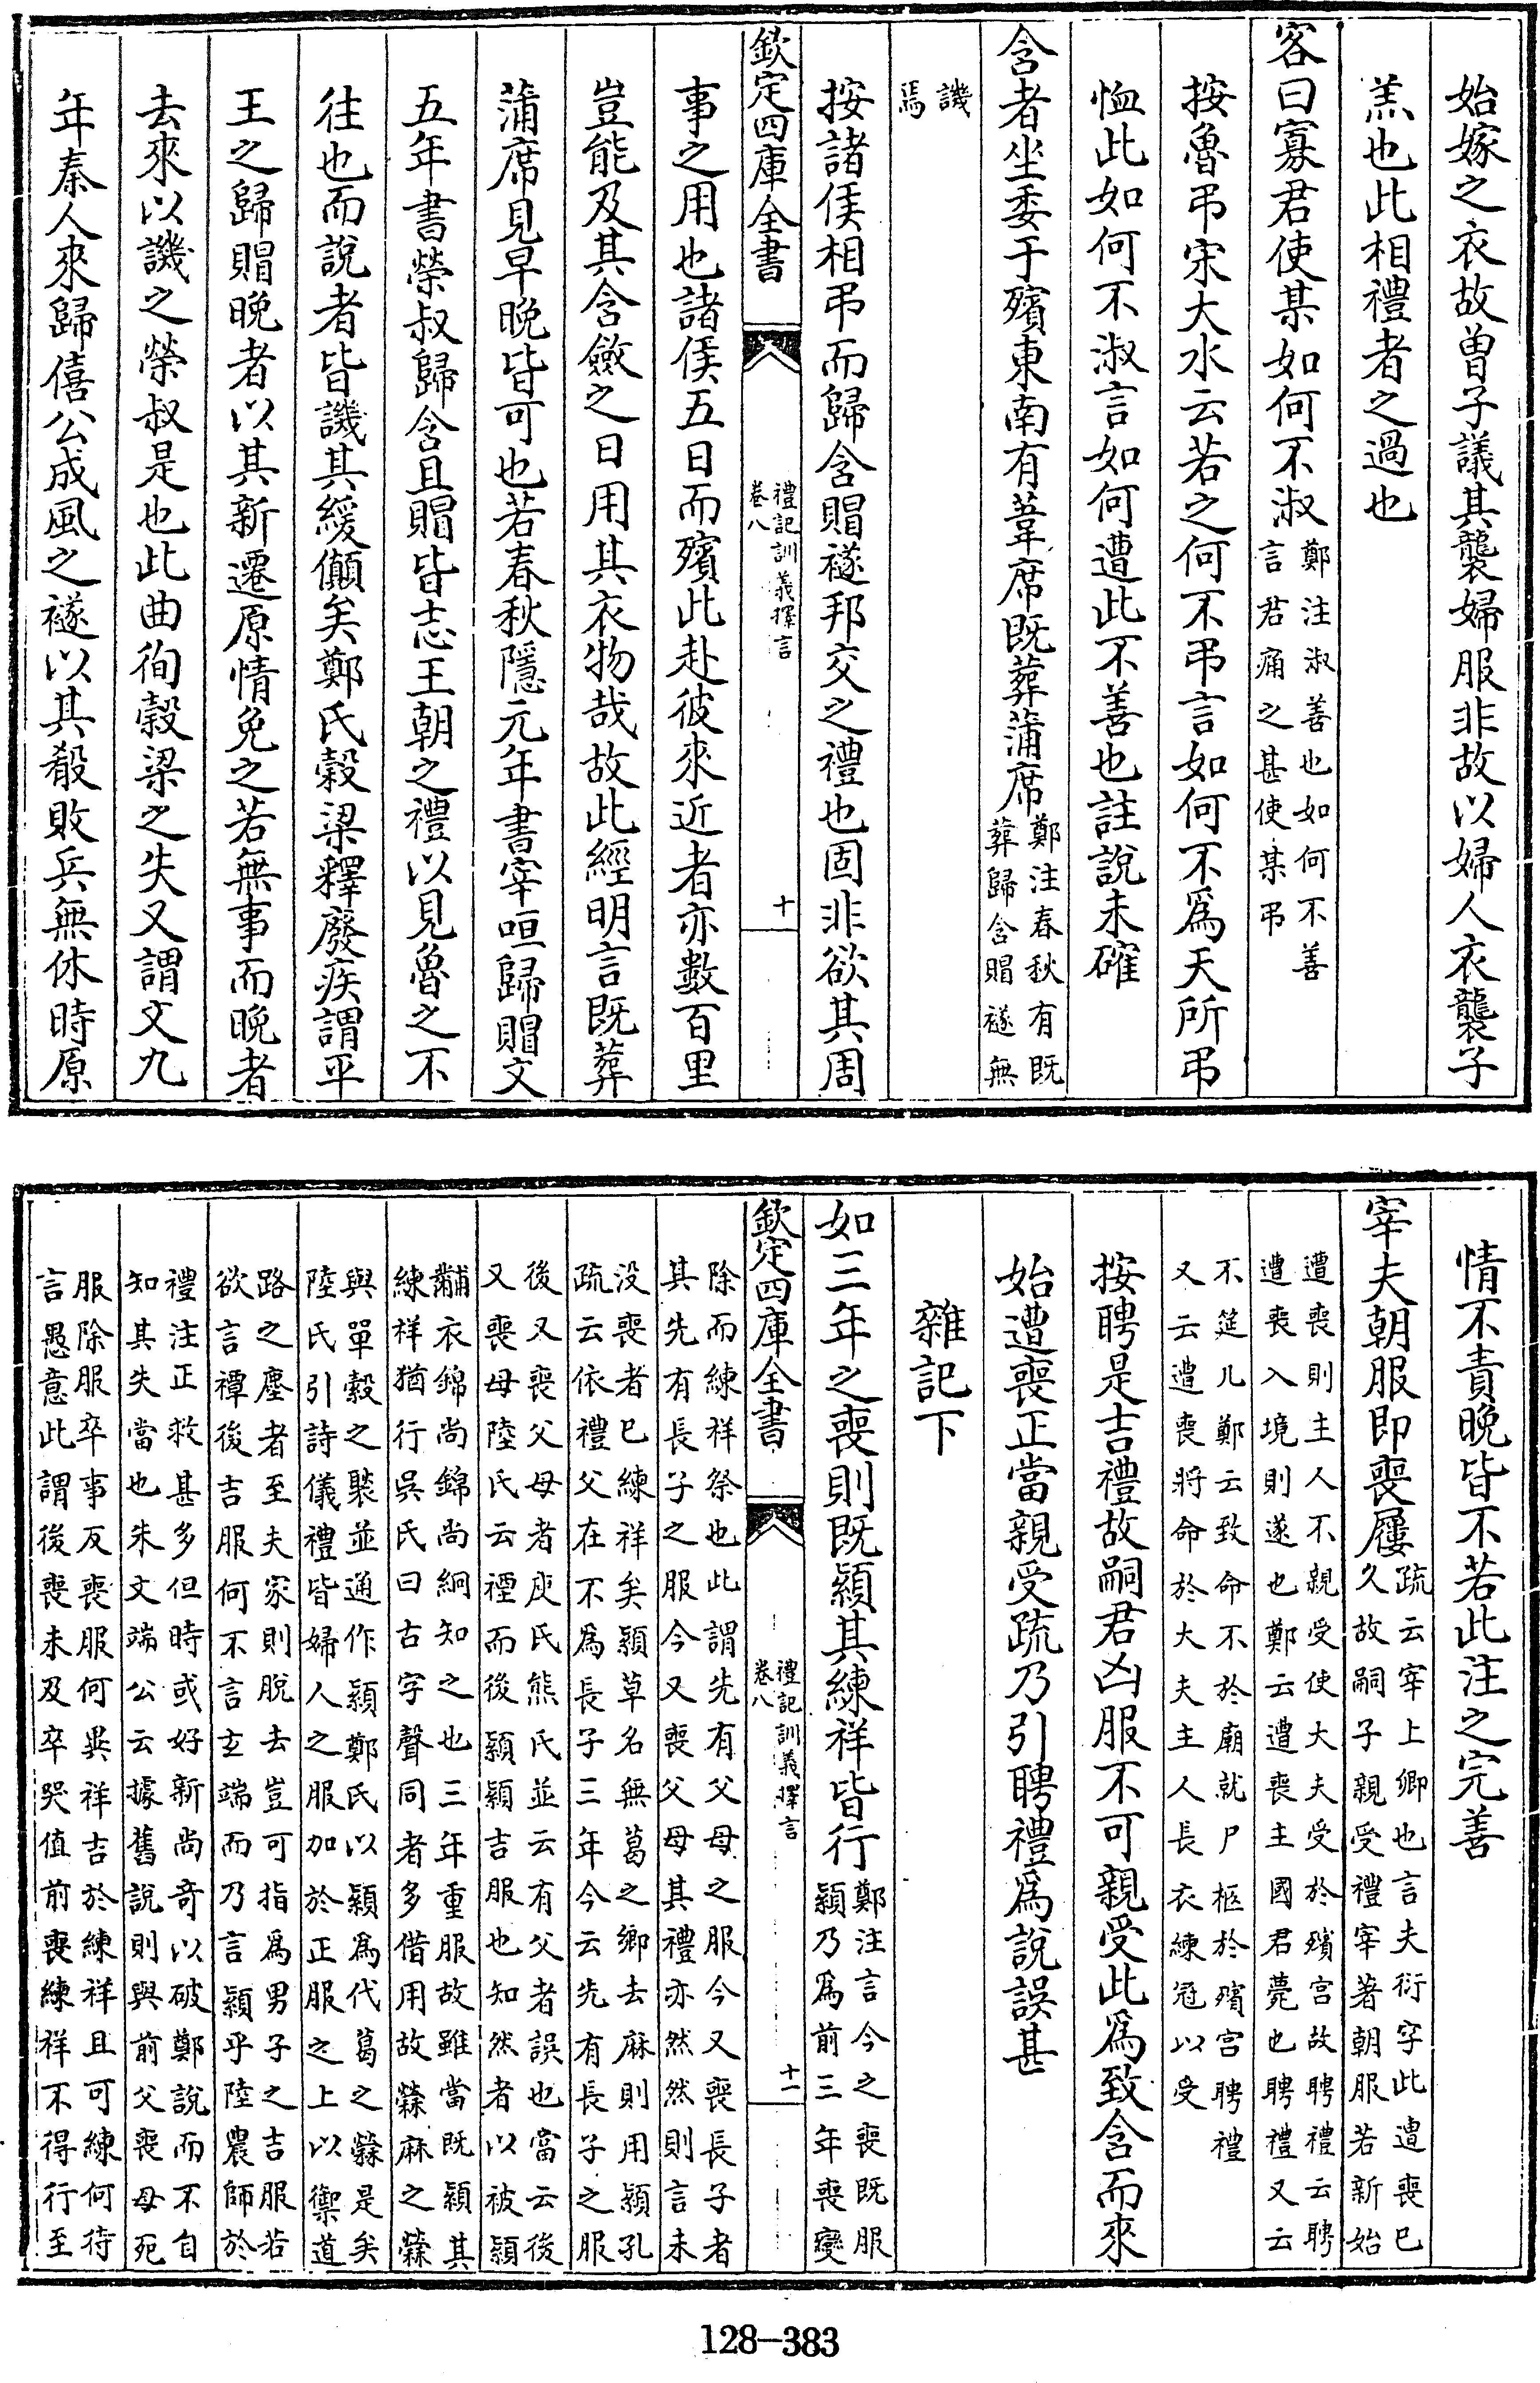 始嫁之衣故曾子議其襲婦服非故以婦人衣襲子
羔也此相禮者之過也
客曰寡君使某如何不淑鄭注淑善也如何不善言君痛之甚使某弔
按魯弔宋大水云若之何不弔言如何不爲天所弔
恤此如何不淑言如何遭此不善也註說未確
含者坐委于殯東南有葦席既葬蒲席鄭注春秋有既葬歸含賵襚無
譏焉
按諸侯相弔而歸含賵襚邦交之禮也固非欲其周
欽定四庫全書 禮記訓義擇言 卷八 十
事之用也諸侯五日而殯此赴彼來近者亦數百里
豈能及其含斂之日用其衣物哉故此經明言既葬
蒲席見早晚皆可也若春秋隱元年書宰咺歸賵文
五年書榮叔歸含且賵皆志王朝之禮以見魯之不
往也而說者皆譏其緩傎矣鄭氏穀梁釋廢疾謂平
王之歸賵晚者以其新遷原情免之若無事而晚者
去來以譏之榮叔是也此曲徇穀梁之失又謂文九
年秦人來歸僖公成風之襚以其殽敗兵無休時原
情不責晚皆不若此注之完善
宰夫朝服即喪屨疏云宰上卿也言夫衍字此遭喪已久故嗣子親受禮宰著朝服若新始
遭喪則主人不親受使大夫受於殯宮故聘禮云聘遭喪入境則遂也鄭云遭喪主國君薨也聘禮又云
不筵几鄭云致命不於廟就尸柩於殯宮聘禮又云遭喪將命於大夫主人長衣練冠以受
按聘是吉禮故嗣君凶服不可親受此爲致含而來
始遭喪正當親受疏乃引聘禮爲說誤甚
雜記下
如三年之喪則既顈其練祥皆行鄭注言今之喪既服顈乃爲前三年喪變
欽定四庫全書 禮記訓義擇言 卷八 十一
除而練祥祭也此謂先有父母之服今又喪長子者其先有長子之服今又喪父母其禮亦然然則言未
没喪者已練祥矣顈草名無葛之鄉去麻則用顈孔疏云依禮父在不爲長子三年今云先有長子之服
後又喪父母者庾氏熊氏並云有父者誤也當云後又喪母陸氏云禫而後顈顈吉服也知然者以被顈
黼衣錦尚錦尚絅知之也三年重服故雖當既顈其練祥猶行吳氏曰古字聲同者多借用故䔛麻之䔛
與單縠之褧並通作顈鄭氏以顈爲代葛之䔛是矣陸氏引詩儀禮皆婦人之服加於正服之上以禦道
路之塵者至夫家則脫去豈可指爲男子之吉服若欲言禫後吉服何不言玄端而乃言顈乎陸農師於
禮注正救甚多但時或好新尚奇以破鄭說而不自知其失當也朱文端公云據舊說則與前父喪母死
服除服卒事反喪服何異祥吉於練祥且可練何待言愚意此謂後喪未及卒哭值前喪練祥不得行至
128-383